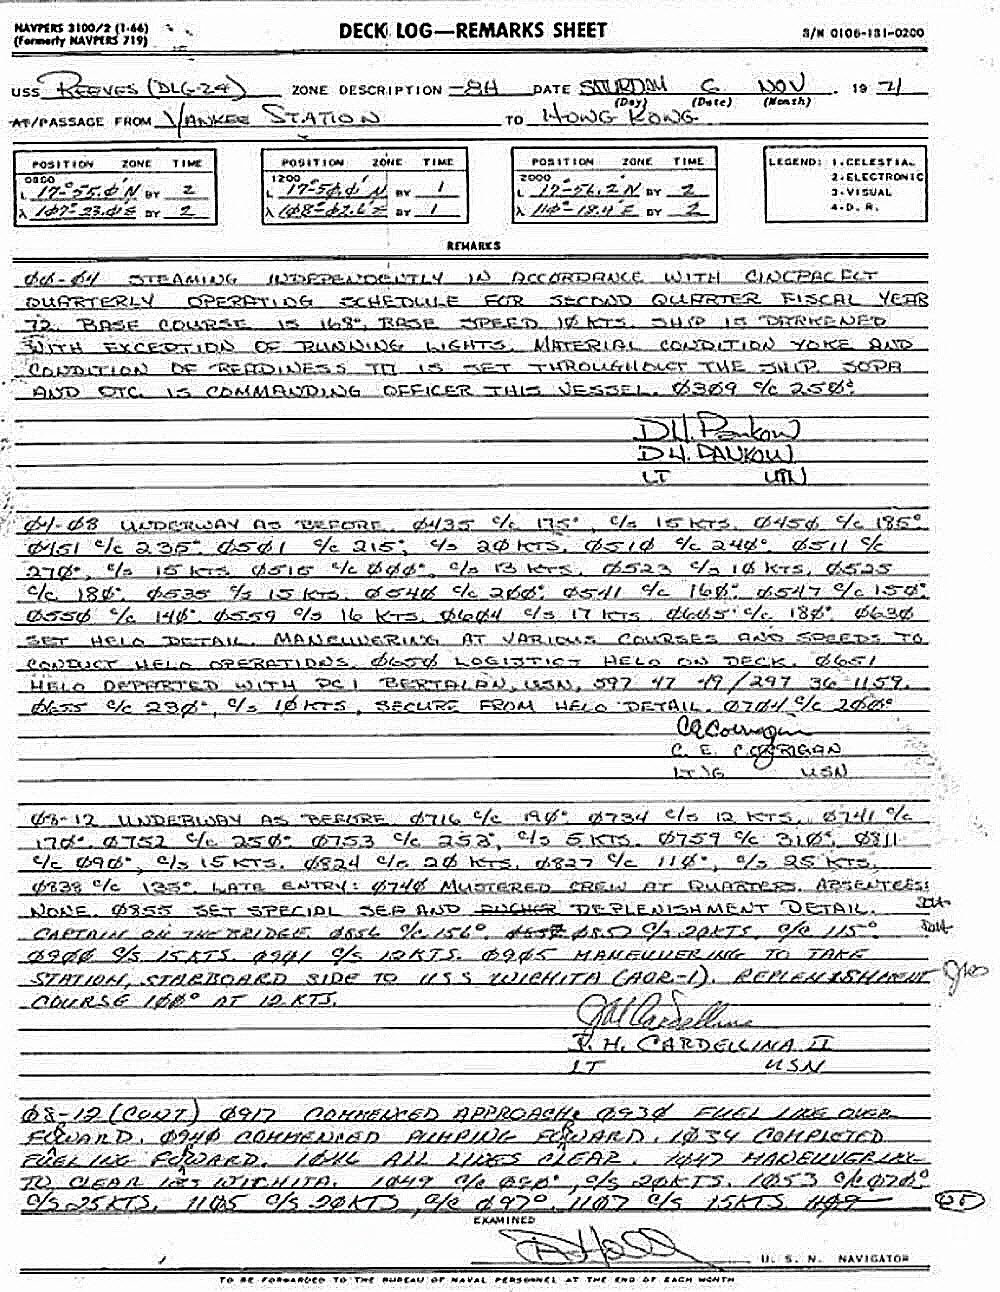 NAVPERS 3100/2 (1-66)
(Formerly NAVPERS 719)
DECK LOG—REMARKS SHEET
S/N 0106-131-0200
USS REEVES (DLG-24) ZONE DESCRIPTION -8H DATE SATURDAY 6 NOV 19 71
(Day) (Date) (Month)
AT/PASSAGE FROM YANKEE STATION TO HONG KONG
POSITION ZONE TIME
0800
L 17°-55.0'N BY 2
λ 107°-23.0'E BY 2
POSITION ZONE TIME
1200
L 17°-50.0'N BY 1
λ 108°-02.6'E BY 1
POSITION ZONE TIME
2000
L 17°-56.2'N BY 2
λ 110°-18.4'E BY 2
LEGEND: 1-CELESTIAL
2-ELECTRONIC
3-VISUAL
4-D. R.
REMARKS
00-04 STEAMING INDEPENDENTLY IN ACCORDANCE WITH CINCPACFLT
QUARTERLY OPERATING SCHEDULE FOR SECOND QUARTER FISCAL YEAR
72. BASE COURSE IS 168°, BASE SPEED 10 KTS. SHIP IS DARKENED
WITH EXCEPTION OF RUNNING LIGHTS. MATERIAL CONDITION YOKE AND
CONDITION OF READINESS III IS SET THROUGHOUT THE SHIP. SOPA
AND OTC IS COMMANDING OFFICER THIS VESSEL. 0309 C/C 250°.
D.H. Pankow
D.H. PANKOW
LT USN
04-08 UNDERWAY AS BEFORE. 0435 C/C 175°, C/S 15 KTS. 0450 C/C 185°
0451 C/C 235°. 0501 C/C 215°, C/S 20 KTS. 0510 C/C 240°. 0511 C/C
270°, C/S 15 KTS. 0515 C/C 000°, C/S 13 KTS. 0523 C/S 10 KTS. 0525
C/C 180°. 0535 C/S 15 KTS. 0540 C/C 200°. 0541 C/C 160°. 0547 C/C 150°.
0550 C/C 140°. 0559 C/S 16 KTS. 0604 C/S 17 KTS. 0605 C/C 180°. 0630
SET HELO DETAIL. MANEUVERING AT VARIOUS COURSES AND SPEEDS TO
CONDUCT HELO OPERATIONS. 0650 LOGISTICS HELO ON DECK. 0651
HELO DEPARTED WITH PC1 BERTALAN, USN, 597 47 49/297 36 1159.
0655 C/C 230°, C/S 10 KTS, SECURE FROM HELO DETAIL. 0704 C/C 200°
C E Corrigan
C. E. CORRIGAN
LTJG USN
08-12 UNDERWAY AS BEFORE. 0716 C/C 190° 0734 C/S 12 KTS. 0741 C/C
170°. 0752 C/C 250°. 0753 C/C 253°, C/S 5 KTS. 0759 C/C 310°. 0811
C/C 090°, C/S 15 KTS. 0824 C/S 20 KTS. 0827 C/C 110°, C/S 25 KTS.
0838 C/C 135°. LATE ENTRY: 0740 MUSTERED CREW AT QUARTERS. ABSENTEES:
NONE. 0855 SET SPECIAL SEA AND ANCHOR REPLENISHMENT DETAIL.
CAPTAIN ON THE BRIDGE. 0856 C/C 156°. 0857 C/S 20 KTS, C/C 115°
0900 C/S 15 KTS. 0901 C/S 12 KTS. 0905 MANEUVERING TO TAKE
STATION, STARBOARD SIDE TO USS WICHITA (AOR-1). REPLENISHMENT
COURSE 100° AT 12 KTS.
J. H. CARDELLINA II
LT USN
08-12 (CONT) 0917 COMMENCED APPROACH. 0930 FUEL LINE OVER
FORWARD. 0940 COMMENCED PUMPING FORWARD. 1034 COMPLETED
FUELING FORWARD. 1046 ALL LINES CLEAR. 1047 MANEUVERING
TO CLEAR USS WICHITA. 1049 C/C 090°, C/S 20 KTS. 1053 C/C 070°
C/S 25 KTS. 1105 C/S 20 KTS, C/C 097°. 1107 C/S 15 KTS. 1109
EXAMINED
U. S. N. NAVIGATOR
TO BE FORWARDED TO THE BUREAU OF NAVAL PERSONNEL AT THE END OF EACH MONTH